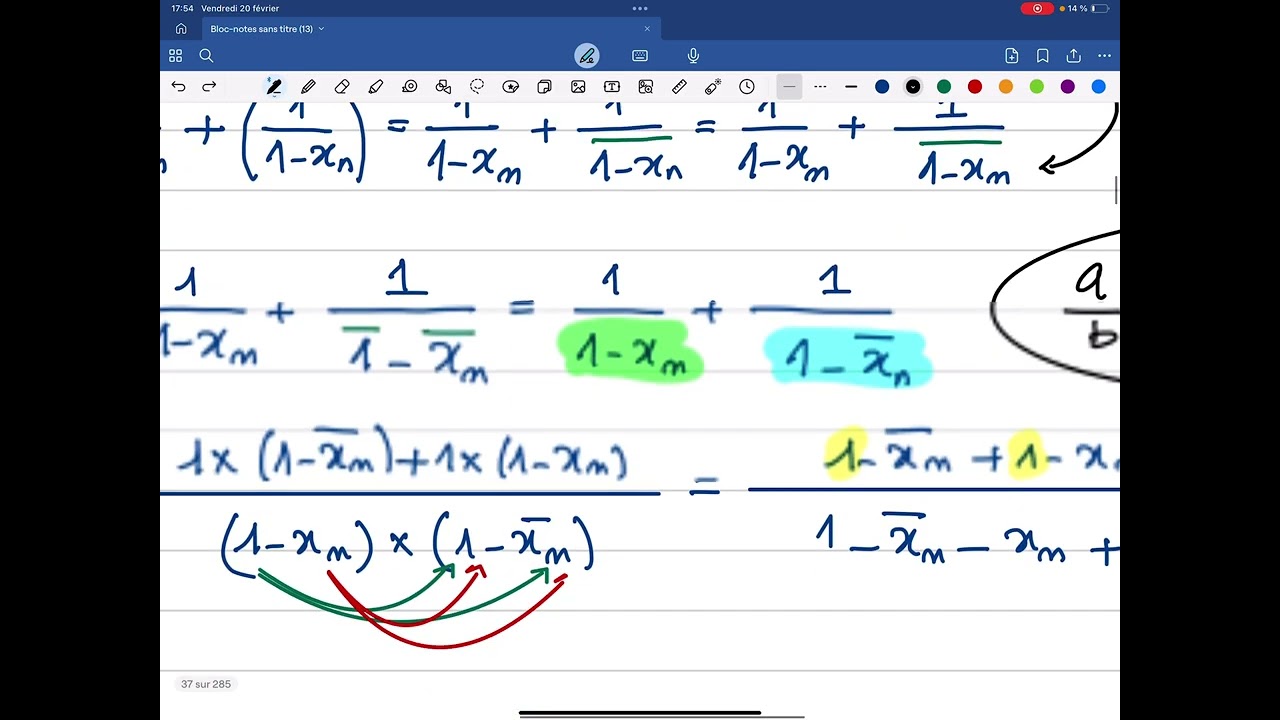 17:54 Vendredi 20 février 14 %
Bloc-notes sans titre (13)
+ (1/(1-xₙ)) = 1/(1-xₙ) + 1/(1̅-̅x̅ₙ̅) = 1/(1-xₙ) + 1/(1̅-̅x̅ₙ̅)
1/(1-xₙ) + 1/(1̅ - x̅ₙ) = 1/(1-xₙ) + 1/(1 - x̅ₙ) a/b
(1×(1-x̅ₙ)+1×(1-xₙ))/((1-xₙ)×(1-x̅ₙ)) = (1-x̅ₙ+1-xₙ)/(1-x̅ₙ-xₙ+
37 sur 285